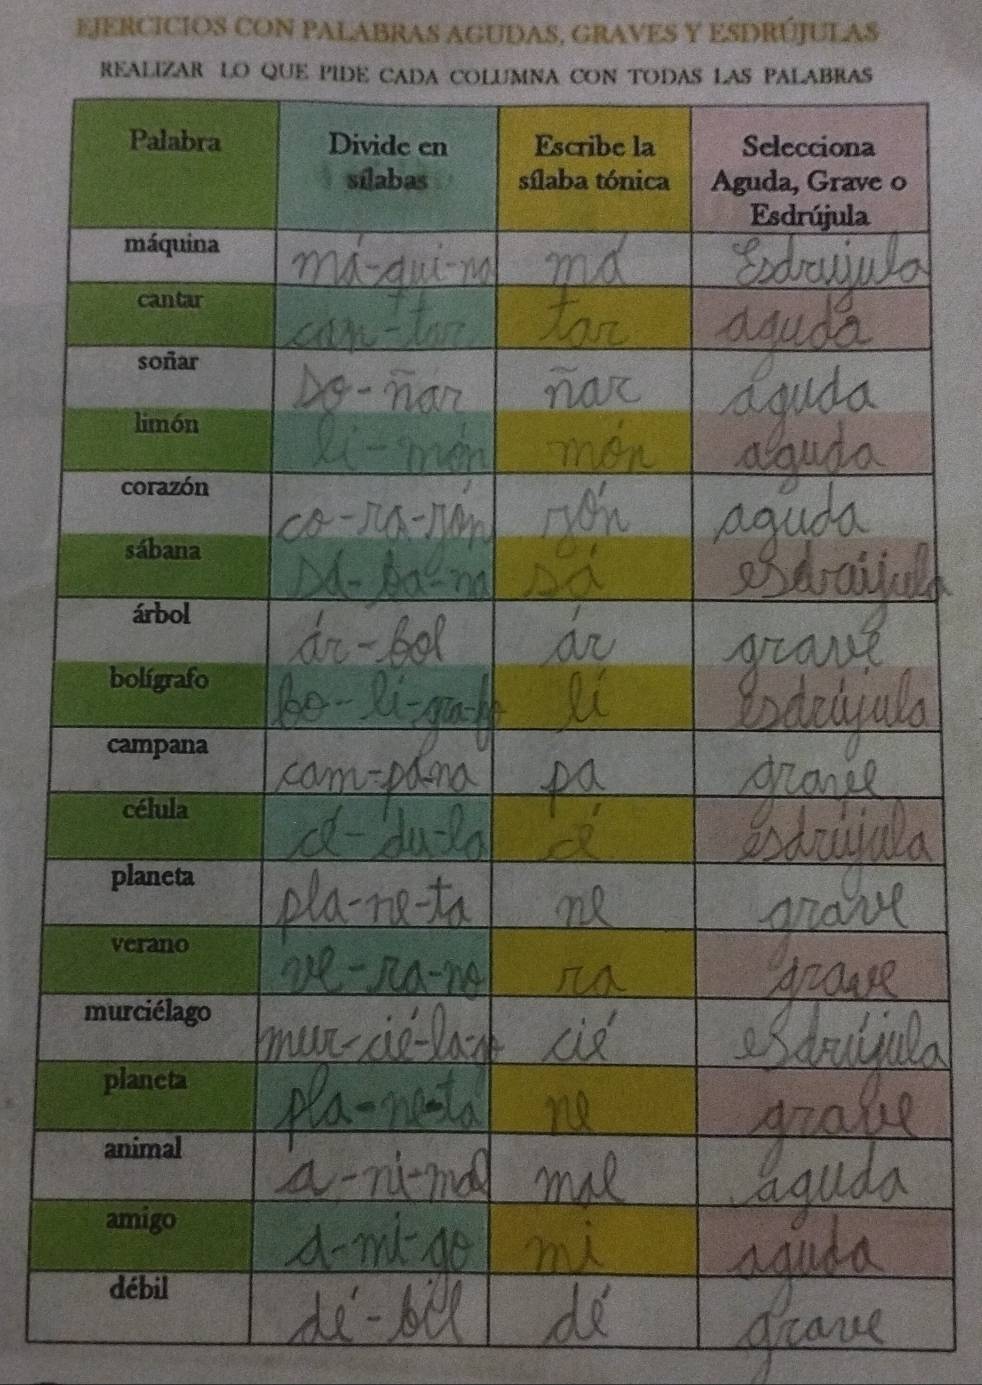 EJERCICIOS CON PALABRAS AGUDAS, GRAVES Y ESDRÚJULAS
REALIZAR LO QUE PIDE CADA COLUMNA CON TODAS LAS PALABRAS
Palabra Divide en sílabas Escribe la sílaba tónica Selecciona Aguda, Grave o Esdrújula
máquina má-qui-na má Esdrujula
cantar can-tar tar aguda
soñar so-ñar ñar aguda
limón li-món món aguda
corazón co-ra-zón zón aguda
sábana sá-ba-na sá esdrújula
árbol ár-bol ár grave
bolígrafo bo-lí-gra-fo lí esdrújula
campana cam-pa-na pa grave
célula cé-du-la cé esdrújula
planeta pla-ne-ta ne grave
verano ve-ra-no ra grave
murciélago mur-cié-la-go cié esdrújula
planeta pla-ne-ta ne grave
animal a-ni-mal mal aguda
amigo a-mi-go mi aguda
débil dé-bil dé grave